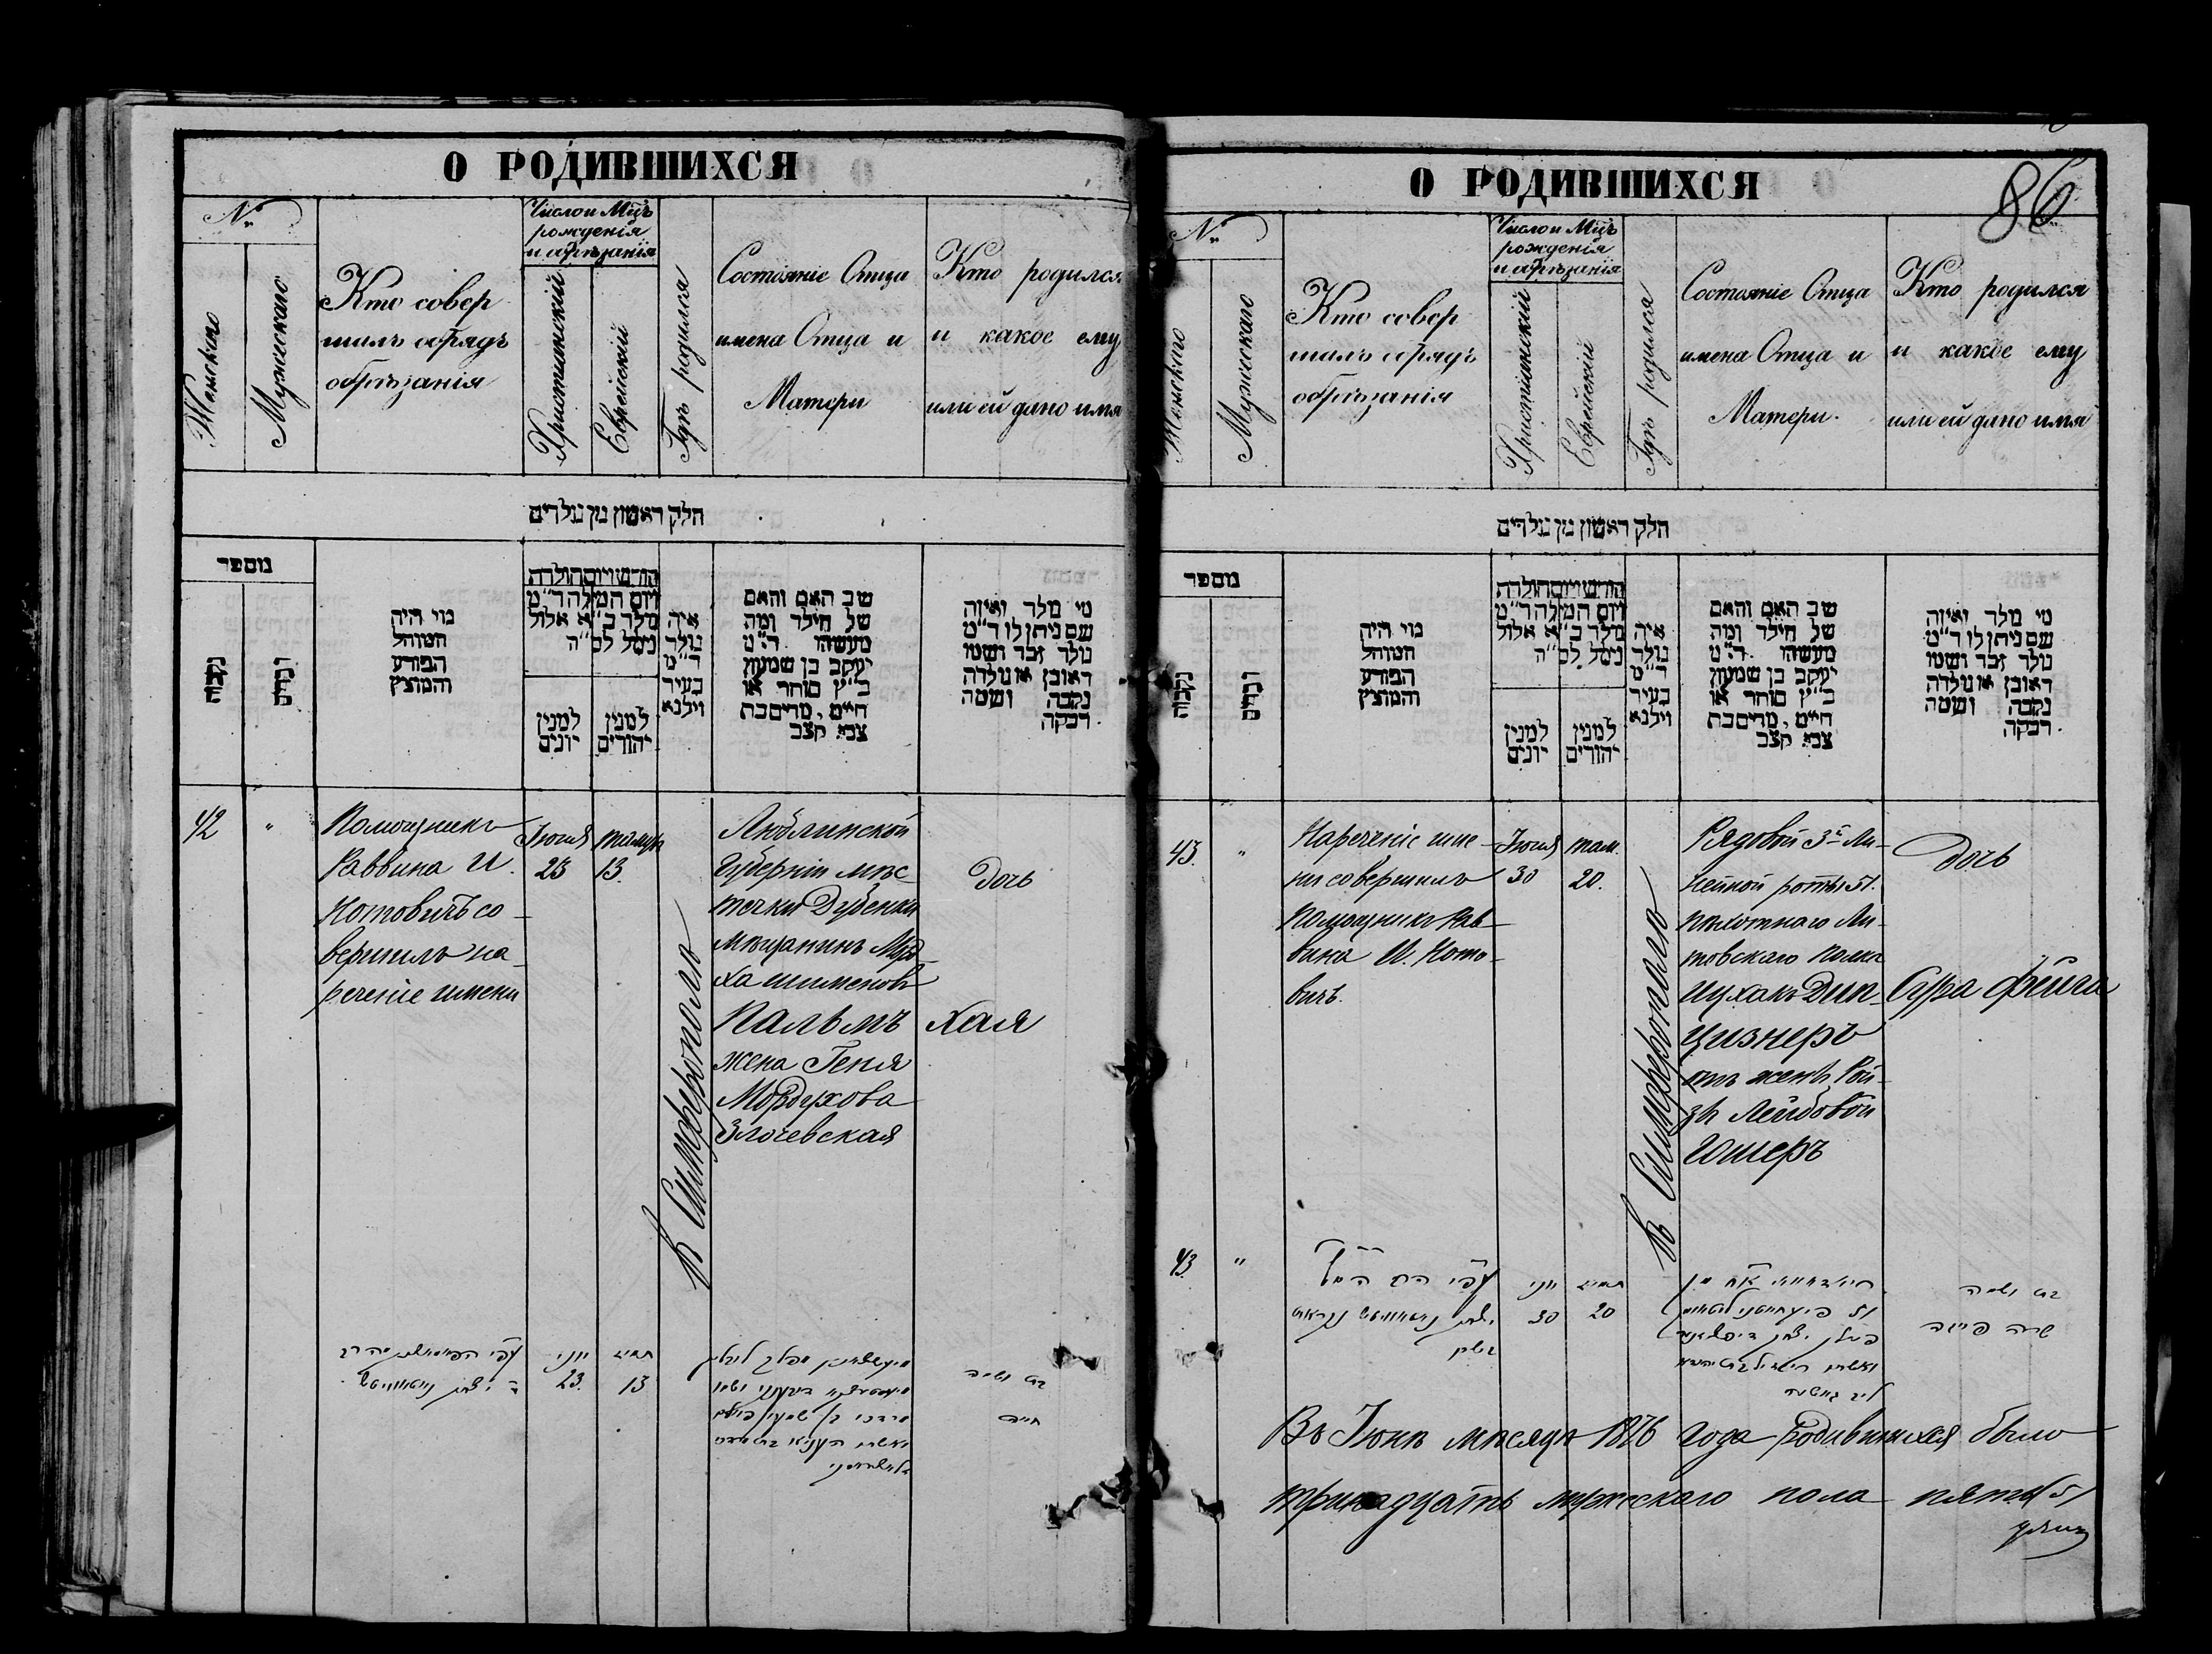 О РОДИВШИХСЯ
№
Женскаго
Мужескаго
Кто совер
шилъ обрядъ
обрѣзанія
Число и Мцъ
рожденія
и обрѣзанія
Христіанскій
Еврейскій
Гдѣ родился
Состояніе Отца
имена Отца и
Матери
Кто родился
и какое ему
или ей дано имя
חלק ראשון מן נולדים
מספר
נקבות
זכרים
מי היה
המוהל
הפורע
והמוצץ
חודש ויום הולדת
ויום המילה ר"מ
נולד כ"א אלול
נימל לס"ה
למנין
יונים
למנין
יהודים
איה
נולד
ד"מ
בעיר
וילנא
שם האם והאם
של הילד ומה
מעשהו ד"מ
יעקב בן שמעון
כ"ץ סוחר או
חיים, מרים בת
צבי קצב
מי נולד ואיזה
שם ניתן לו ד"מ
נולד זכר ושמו
ראובן או נולדה
נקבה ושמה
רבקה
42
"
Помощникъ
Раввина И.
Нотовичъ со-
вершилъ на-
реченіе имени
Іюня
23
тамуз
13.
въ Симферополѣ
Люблинской
губерніи мѣс-
течки Дубенки
мѣщанинъ Морд-
ха Шименовъ
Пальмъ
жена Геня
Мордухова
Злочевская
дочь
Хая
יוני
23.
תמוז
13
בת ושמה
חיה
О РОДИВШИХСЯ
86
№
Женскаго
Мужескаго
Кто совер
шилъ обрядъ
обрѣзанія
Число и Мцъ
рожденія
и обрѣзанія
Христіанскій
Еврейскій
Гдѣ родился
Состояніе Отца
имена Отца и
Матери.
Кто родился
и какое ему
или ей дано имя
חלק ראשון מן נולדים
מספר
נקבות
זכרים
מי היה
המוהל
הפורע
והמוצץ
חודש ויום הולדת
ויום המילה ר"מ
נולד כ"א אלול
נימל לס"ה
למנין
יונים
למנין
יהודים
איה
נולד
ד"מ
בעיר
וילנא
שם האם והאם
של הילד ומה
מעשהו ד"מ
יעקב בן שמעון
כ"ץ סוחר או
חיים, מרים בת
צבי קצב
מי נולד ואיזה
שם ניתן לו ד"מ
נולד זכר ושמו
ראובן או נולדה
נקבה ושמה
רבקה
43.
"
Нареченіе име-
ни совершилъ
помощникъ Рав-
вина И. Ното-
вичъ.
Іюня
30
там.
20.
въ Симферополѣ
Рядовой 3й Ли-
нейной роты 51.
пѣхотнаго Ли-
товскаго полка
Ицхакъ Дип-
цизнеръ
отъ жены Рой-
зы Лейбовой
Гошеръ
дочь
Сура Фейга
43.
"
יוני
30
תמוז
20
בת ושמה
שרה פייגה
Въ Іюнѣ мѣсяцѣ 1876 года родившихся было
тринадцать мужескаго пола пять 5/